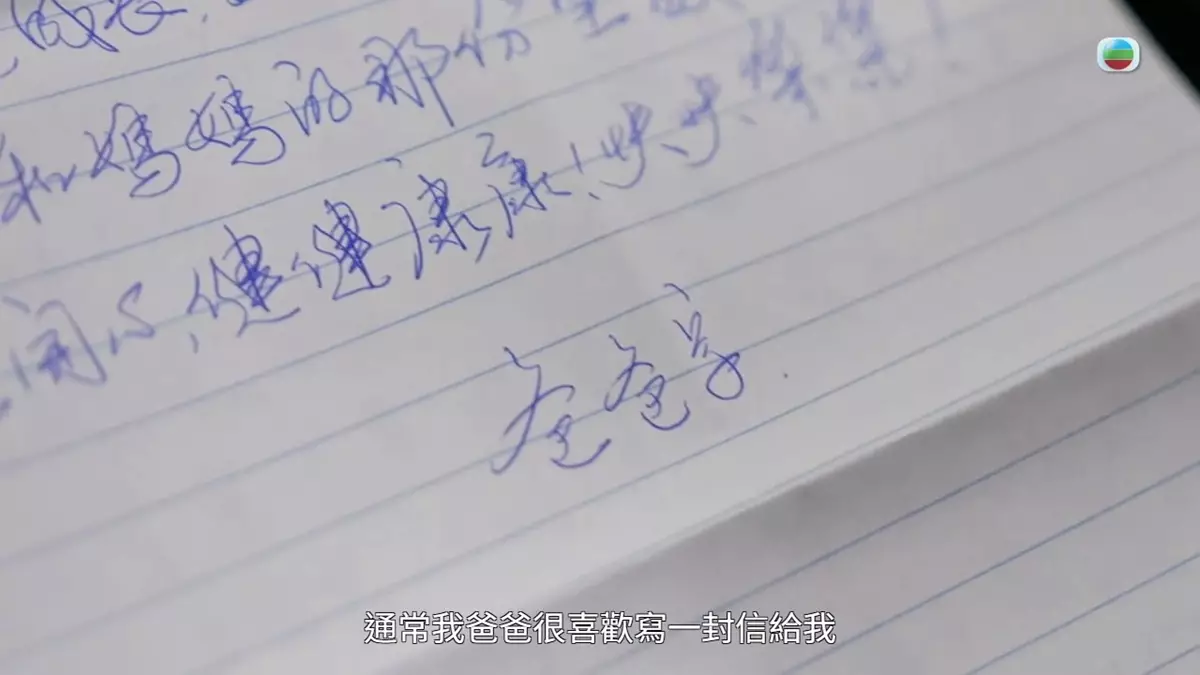 成長,
和媽媽的那份
開心,健健康康!快快樂樂!
爸爸字
通常我爸爸很喜歡寫一封信給我